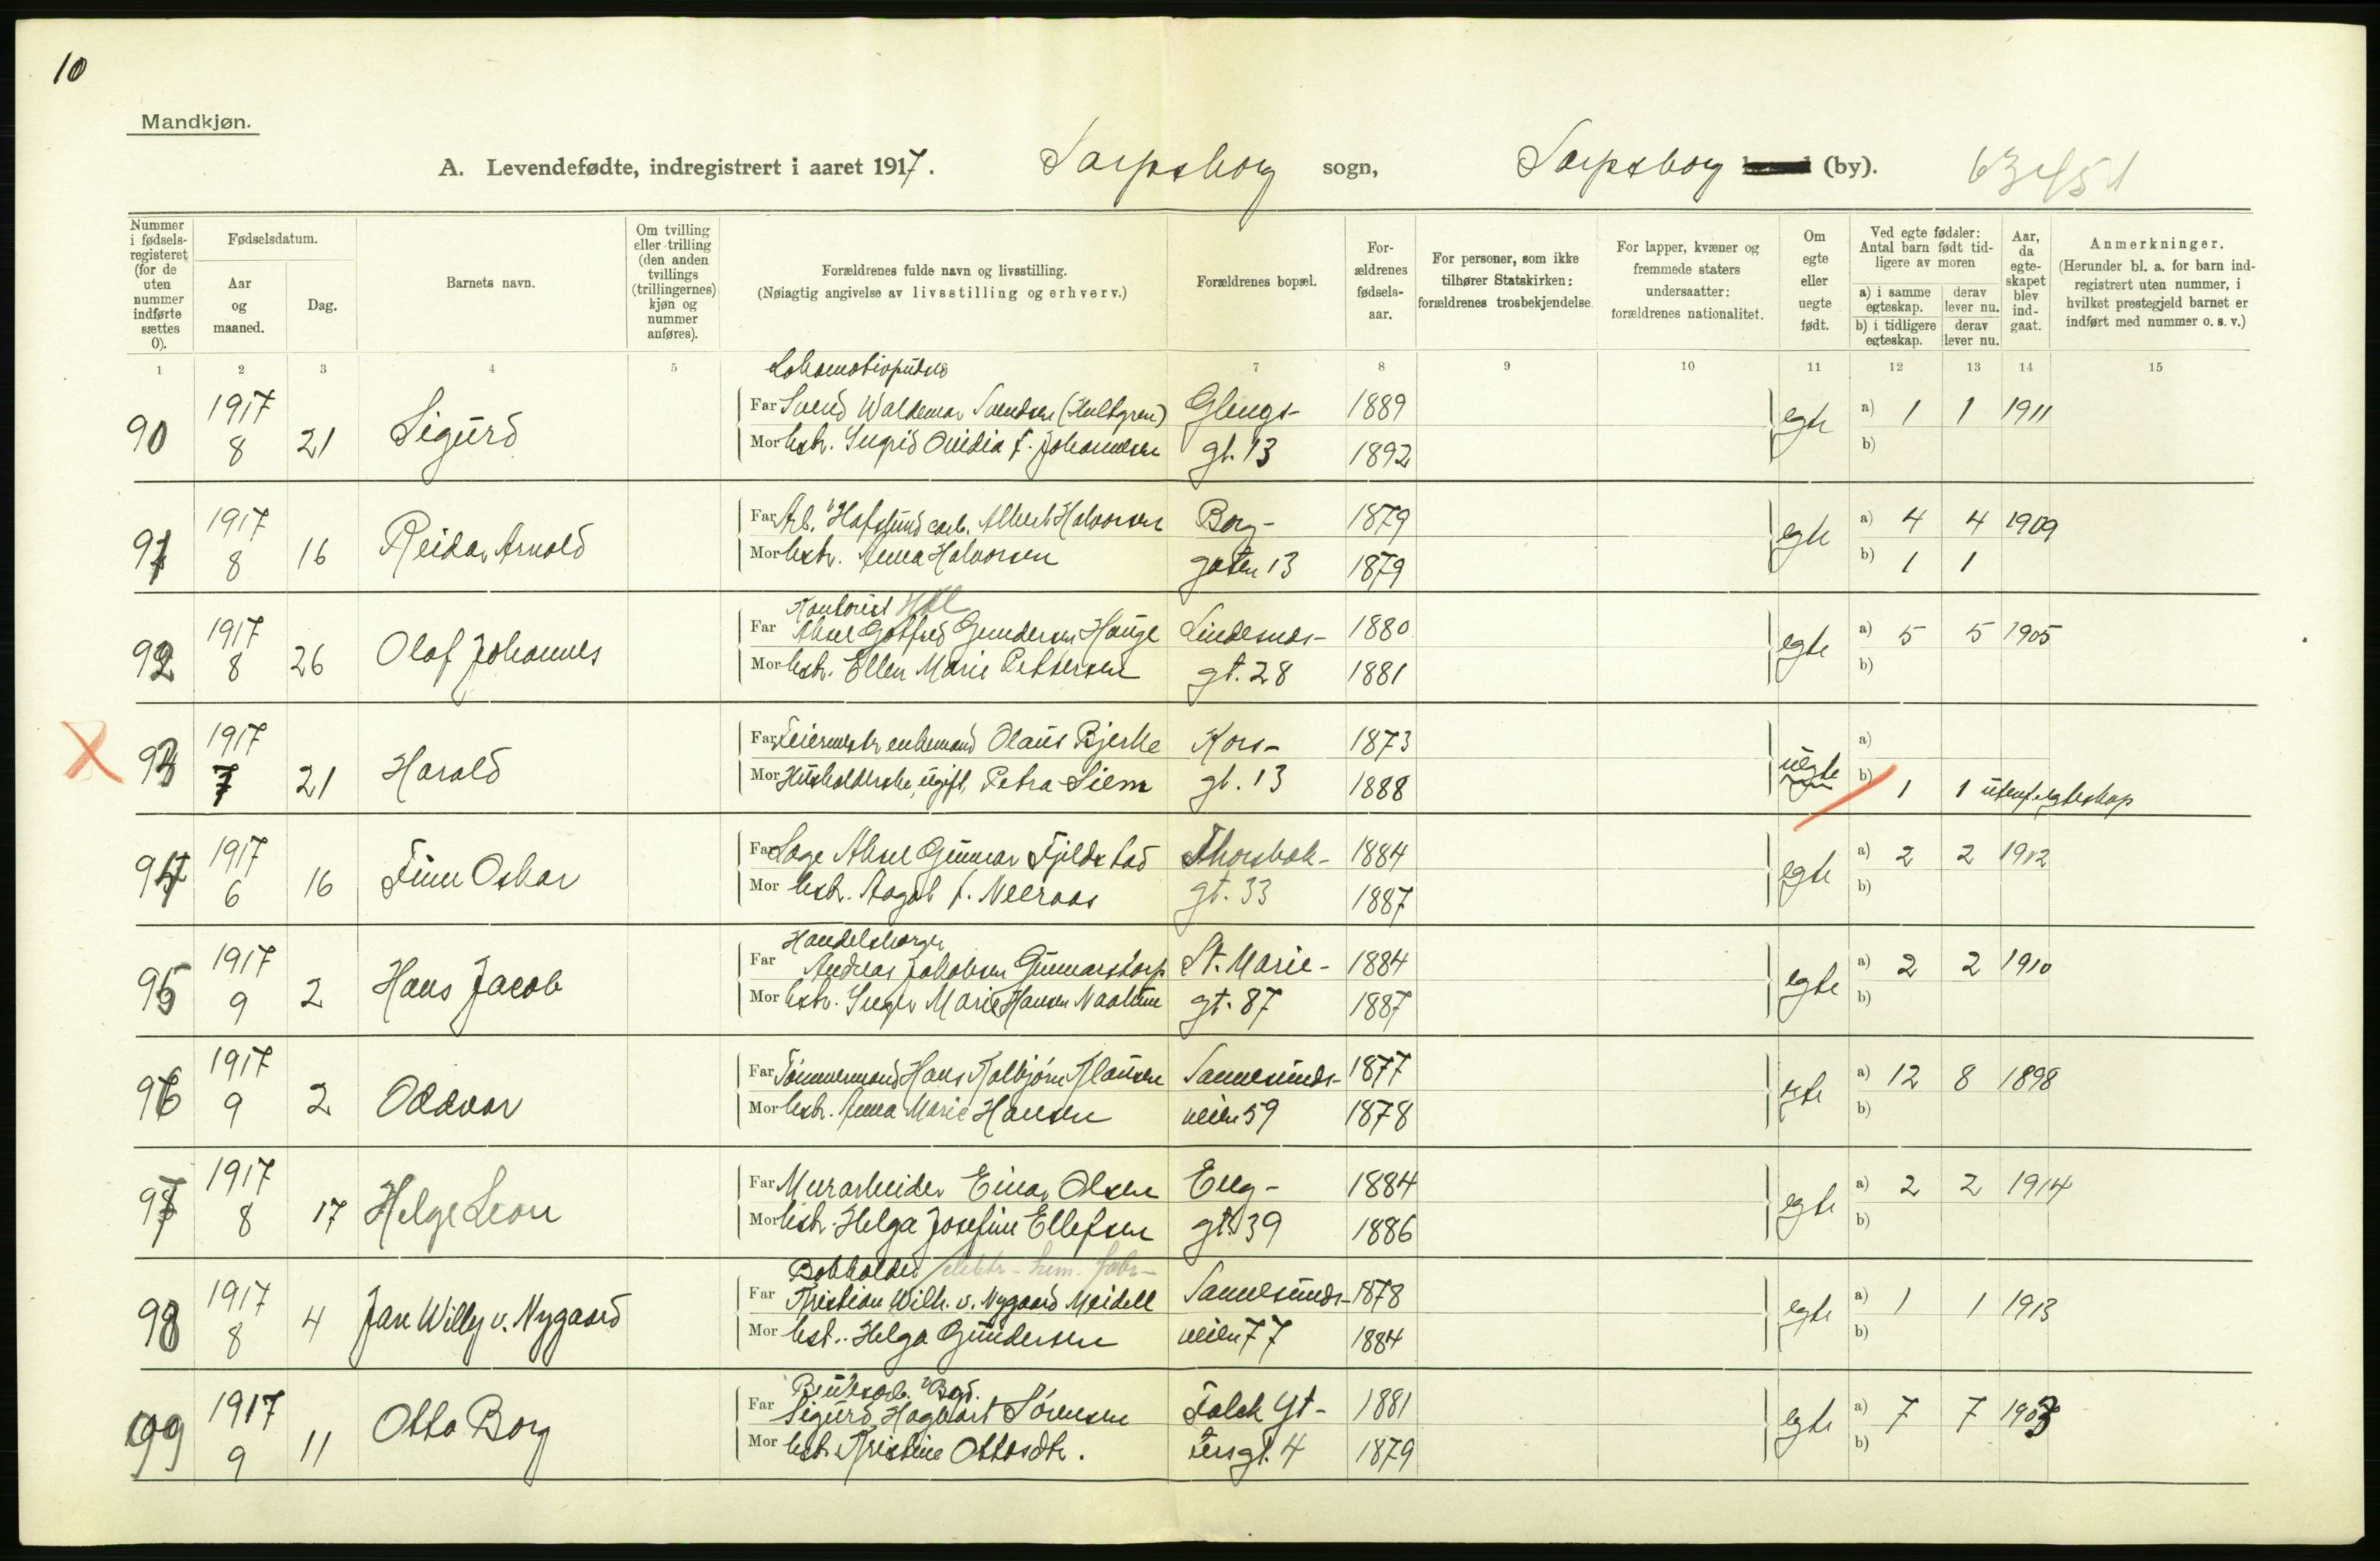 10
Mandkjøn.
A. Levendefødte, indregistrert i aaret 1917. Sarpsborg sogn, Sarpsborg (by).
Nummer i fødsels-registeret (for de uten nummer indførte sættes 0).
Fødselsdatum.
Aar og maaned.
Dag.
Barnets navn.
Om tvilling eller trilling (den anden tvillings (trillingernes) kjøn og nummer anføres).
Forældrenes fulde navn og livsstilling.
(Nøiagtig angivelse av livsstilling og erhverv.)
Forældrenes bopæl.
For-ældrenes fødsels-aar.
For personer, som ikke tilhører Statskirken: forældrenes trosbekjendelse.
For lapper, kvæner og fremmede staters undersaatter: forældrenes nationalitet.
Om egte eller uegte født.
Ved egte fødsler: Antal barn født tid-ligere av moren
a) i samme egteskap.
derav lever nu.
b) i tidligere egteskap.
derav lever nu.
Aar, da egte-skapet blev ind-gaat.
Anmerkninger.
(Herunder bl. a. for barn ind-registrert uten nummer, i hvilket prestegjeld barnet er indført med nummer o. s. v.)
1 2 3 4 5 7 8 9 10 11 12 13 14 15
Lokomotivpudser
90 1917 8 21 Sigurd
Far Svend Waldemar Svendsen (Hultgren) Glengs- 1889 egte a) 1 1 1911
Mor Hstr. Ingrid Ovidia f. Johannesen gt. 13 1892 b)
91 1917 8 16 Reidar Arnold
Far Arb. Hafslund carb. Albert Halvorsen Borg- 1879 egte a) 4 4 1909
Mor Hstr. Anna Halvorsen gaten 13 1879 b) 1 1
Kontorist
92 1917 8 26 Olaf Johannes
Far Aksel Gotfred Gundersen Hauge Lindesnæs- 1880 egte a) 5 5 1905
Mor Hstr. Ellen Marie Pettersen gt. 28 1881 b)
93 1917 7 21 Harald
Far Feiermstr enkemand Olaus Bjerke Kors- 1873 uegte a)
Mor Husholderske, ugift, Petra Siem gt. 13 1888 b) 1 1 utenf. egteskap
94 1917 6 16 Finn Oskar
Far Læge Aksel Gunnar Fjeldstad Thorsbæk- 1884 egte a) 2 2 1912
Mor Hstr. Aagot f. Neeraas gt. 33 1887 b)
Handelsborger
95 1917 9 2 Hans Jacob
Far Andreas Jakobsen Gunnarstorp St. Marie- 1884 egte a) 2 2 1910
Mor Hstr. Inger Marie Hansen Navestad gt. 87 1887 b)
96 1917 9 2 Oddvar
Far Tømmermand Hans Kolbjørn Klausen Sannesunds- 1877 egte a) 12 8 1898
Mor Hstr. Anna Marie Hansen veien 59 1878 b)
97 1917 8 17 Helge Leon
Far Murarbeider Einar Olsen Eng- 1884 egte a) 2 2 1914
Mor Hstr. Helga Josefine Ellefsen gt. 39 1886 b)
Bokholder elektr. kem. fabr.
98 1917 8 4 Jan Willy v. Nygaard
Far Kristian Wilh. v. Nygaard Meidell Sannesunds- 1878 egte a) 1 1 1913
Mor Hst. Helga Gundersen veien 77 1884 b)
99 1917 9 11 Otto Borg
Far Sigurd Hagbart Sørensen Falck Yt- 1881 egte a) 7 7 1903
Mor Hstr Kristine Ottosdtr. tersgt. 4 1879 b)